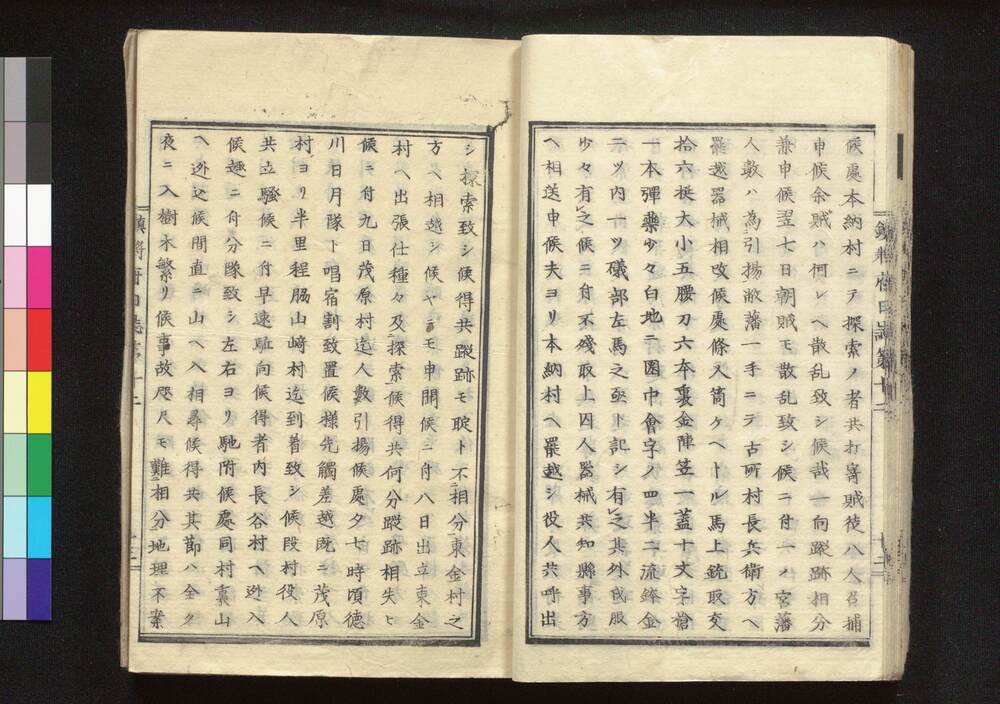 候處本納村ニテ探索ノ者共打寄賊徒八人召捕
申候余賊ハ何レヘ散乱致シ候哉一向蹤跡相分
兼申候翌七日朝賊モ散乱致シ候ニ付一ノ宮藩
人數ハ為引揚敝藩一手ニテ古所村長兵衛方ヘ
罷越器械相改候處條入筒ケヘール馬上銃取交
拾六挺大小五腰刀六本裏金陣笠一蓋十文字槍
一本彈藥少々白地ニ圏中會字ノ四半二流鋒金
二ツ内一ツ礒部左馬之亟ト記シ有之其外戎服
少々有之候ニ付不殘取上囚人器械共知縣事方
ヘ相送申候夫ヨリ本納村ヘ罷越シ役人共呼出
鎮將府日誌第十二
シ探索致シ候得共蹤跡モ聢ト不相分東金村之
方ヘ相越シ候ヤニモ申聞候ニ付八日出立東金
村ヘ出張仕種々及探索候得共何分蹤跡相失ヒ
候ニ付九日茂原村迄人數引揚候處夕七時頃德
川日月隊ト唱宿割致置候様先觸差越既ニ茂原
村ヨリ半里程脇山﨑村迄到着致シ候段村役人
共立騒候ニ付早速駈向候得者内長谷村ヘ迯入
候趣ニ付分隊致シ左右ヨリ馳附候處同村裏山
ヘ迯込候間直ニ山ヘ入相尋候得共其節ハ全ク
夜ニ入樹木繁リ候事故咫尺モ難相分地理不案